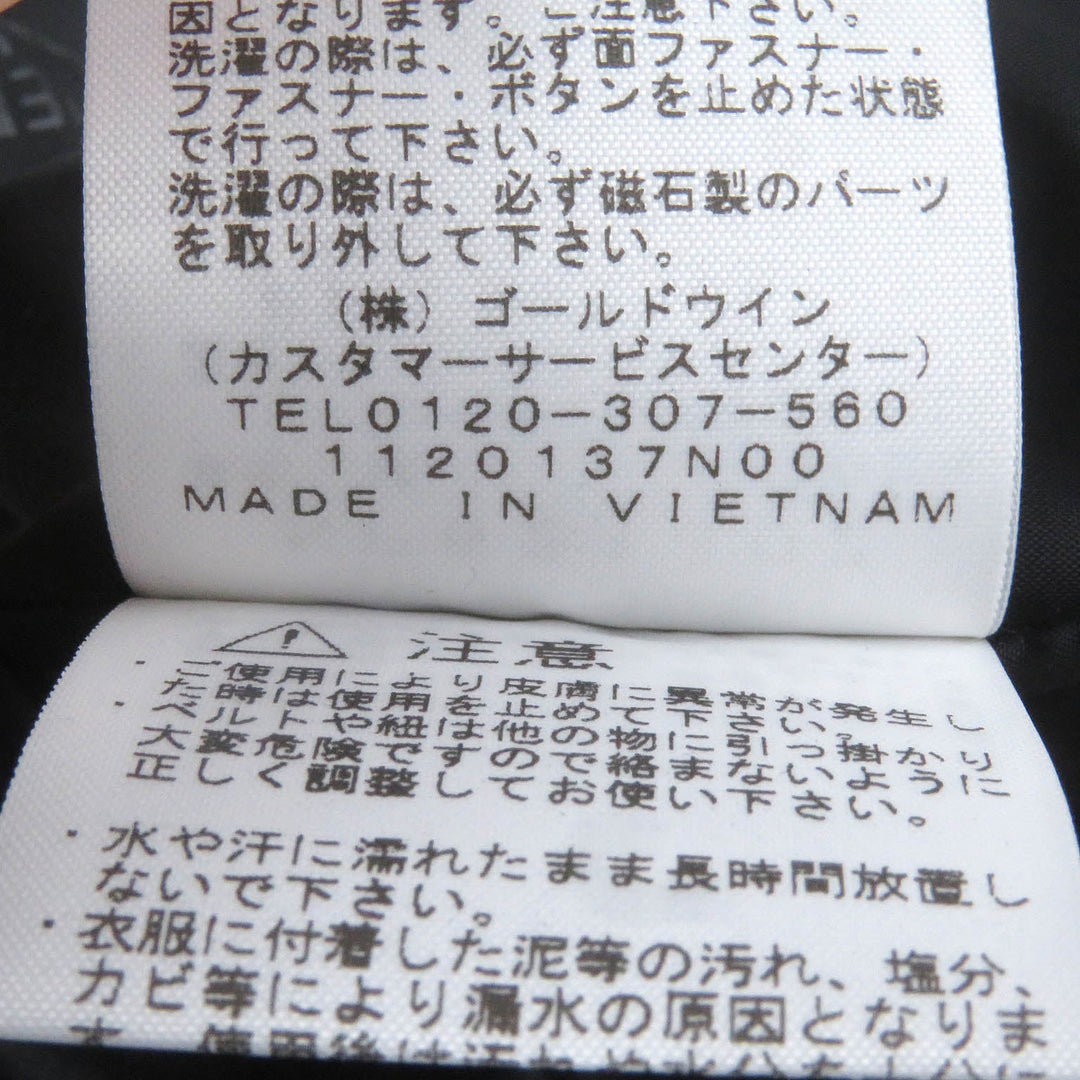 因となります。ご注意下さい。
洗濯の際は、必ず面ファスナー・
ファスナー・ボタンを止めた状態
で行って下さい。
洗濯の際は、必ず磁石製のパーツ
を取り外して下さい。
(株) ゴールドウイン
(カスタマーサービスセンター)
TEL0120-307-560
1120137N00
MADE IN VIETNAM
注意
・ご使用により皮膚に異常が発生し
た時は使用を止めて下さい。
・ベルトや紐は他の物に引っ掛かり
大変危険ですので絡まないように
正しく調整してお使い下さい。
・水や汗に濡れたまま長時間放置し
ないで下さい。
・衣服に付着した泥等の汚れ、塩分、
カビ等により漏水の原因となりま
す。使用後は汚れや水分を十分に